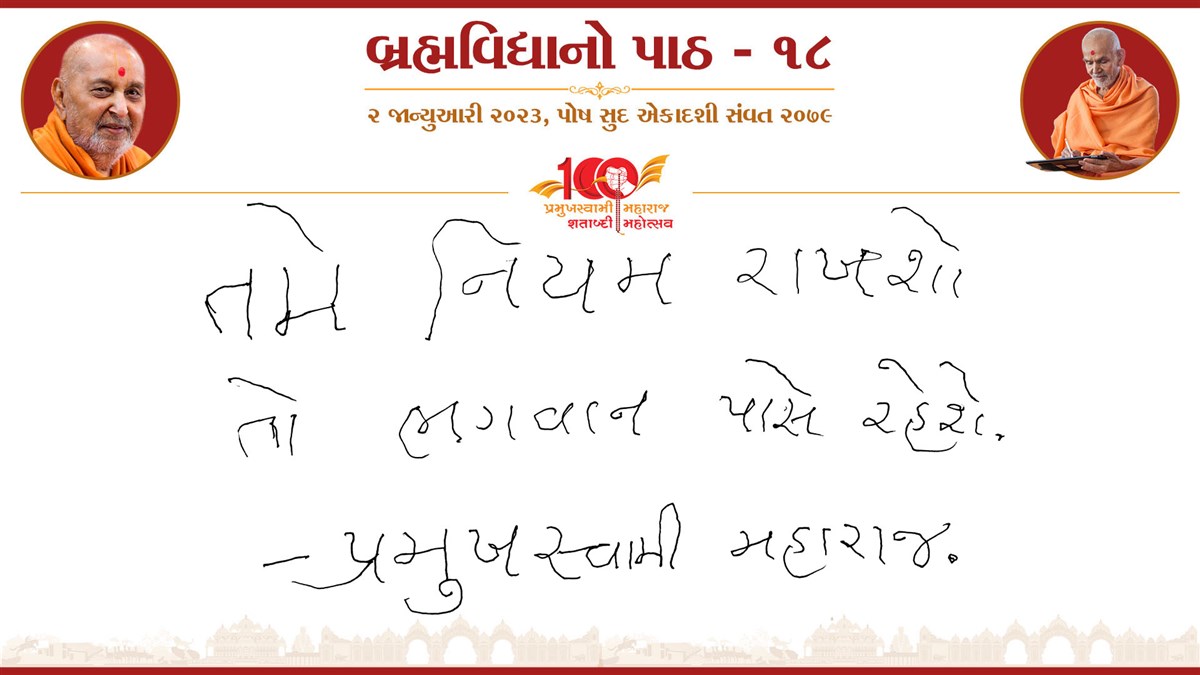 બ્રહ્મવિદ્યાનો પાઠ - ૧૮
૨ જાન્યુઆરી ૨૦૨૩, પોષ સુદ એકાદશી સંવત ૨૦૭૯
100
પ્રમુખસ્વામી મહારાજ
શતાબ્દી મહોત્સવ
તમે નિયમ રાખશો
તો ભગવાન પાસે રહેશે.
- પ્રમુખસ્વામી મહારાજ.